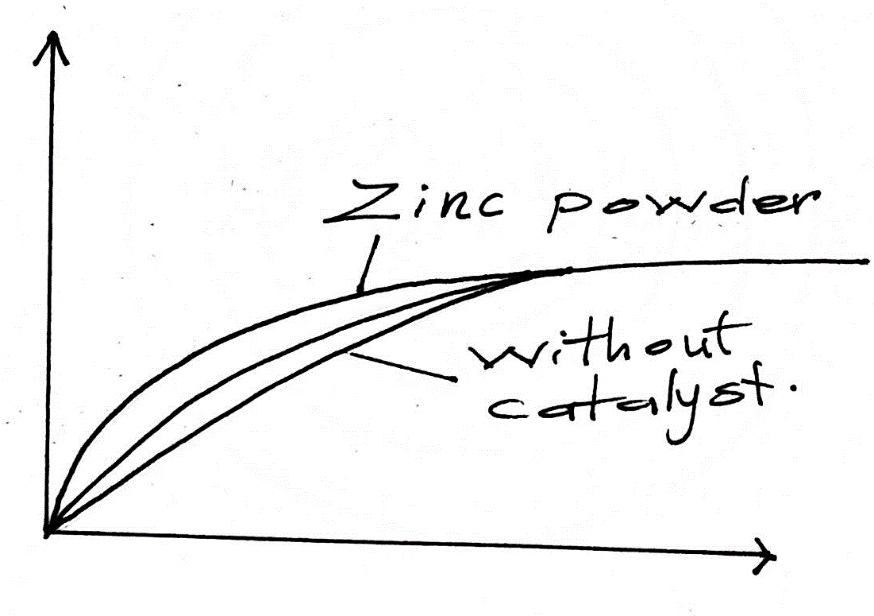 Zinc powder
without
catalyst.